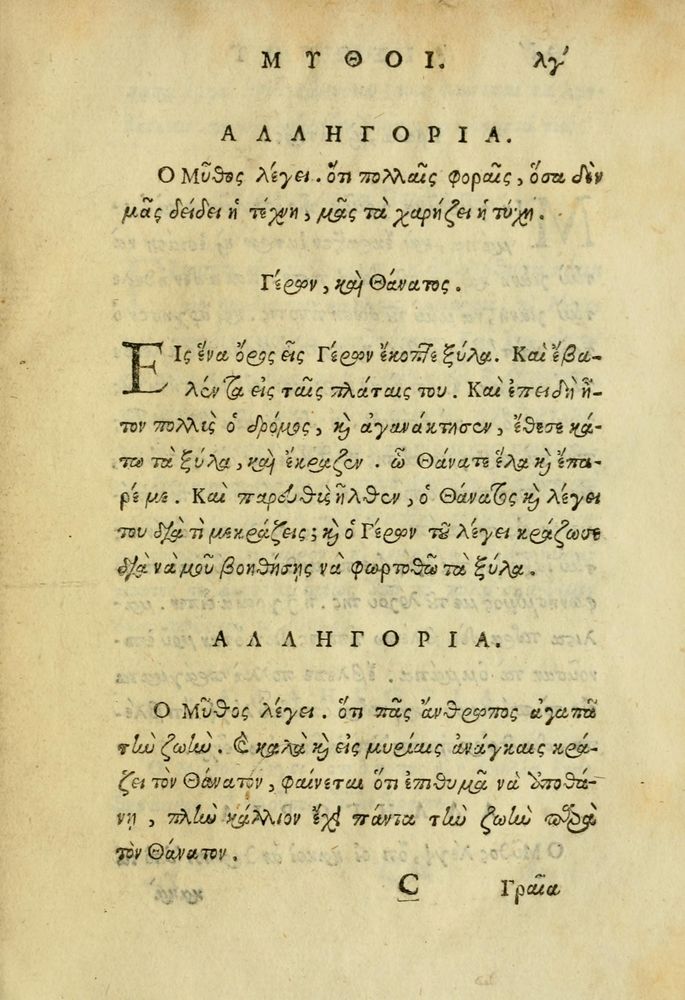 ΜΥΘΟΙ. λγ´
ΑΛΛΗΓΟΡΙΑ.
Ο Μῦθος λέγει. ὅτι πολλαῖς φοραῖς, ὅσα δὲν
μᾶς δείδει ἡ τέχνη, μᾶς τὰ χαρήζει ἡ τύχη.
Γέρων, καὶ Θάνατος.
ΕΙς ἕνα ὄρος εἷς Γέρων ἔκοπτε ξύλα. Καὶ ἔβα-
λέν τα εἰς ταῖς πλάταις του. Καὶ ἐπειδὴ ἦ-
τον πολλὶς ὁ δρόμος, καὶ ἀγανάκτησεν, ἔθεσε κά-
τω τὰ ξύλα, καὶ ἔκραζεν. ὦ Θάνατε ἔλα καὶ ἔπα-
ρέ με. Καὶ παρευθὺς ἦλθεν, ὁ Θάνατος καὶ λέγει
του διὰ τὶ μεκράζεις; καὶ ὁ Γέρων τοῦ λέγει κράζωσε
διὰ νὰ μοῦ βοηθήσης νὰ φωρτοθῶ τὰ ξύλα.
ΑΛΛΗΓΟΡΙΑ.
Ο Μῦθος λέγει. ὅτι πᾶς ἄνθρωπος ἀγαπᾶ
τὴν ζωὴν. Καὶ καλὰ καὶ εἰς μυρίαις ἀνάγκαις κρά-
ζει τὸν Θάνατόν, φαίνεται ὅτι ἐπιθυμᾶ νὰ ἀποθά-
νῃ, πλὴν κάλλιον ἔχει πάντα τὴν ζωὴν παρὰ
τὸν Θάνατον.
C Γραῖα